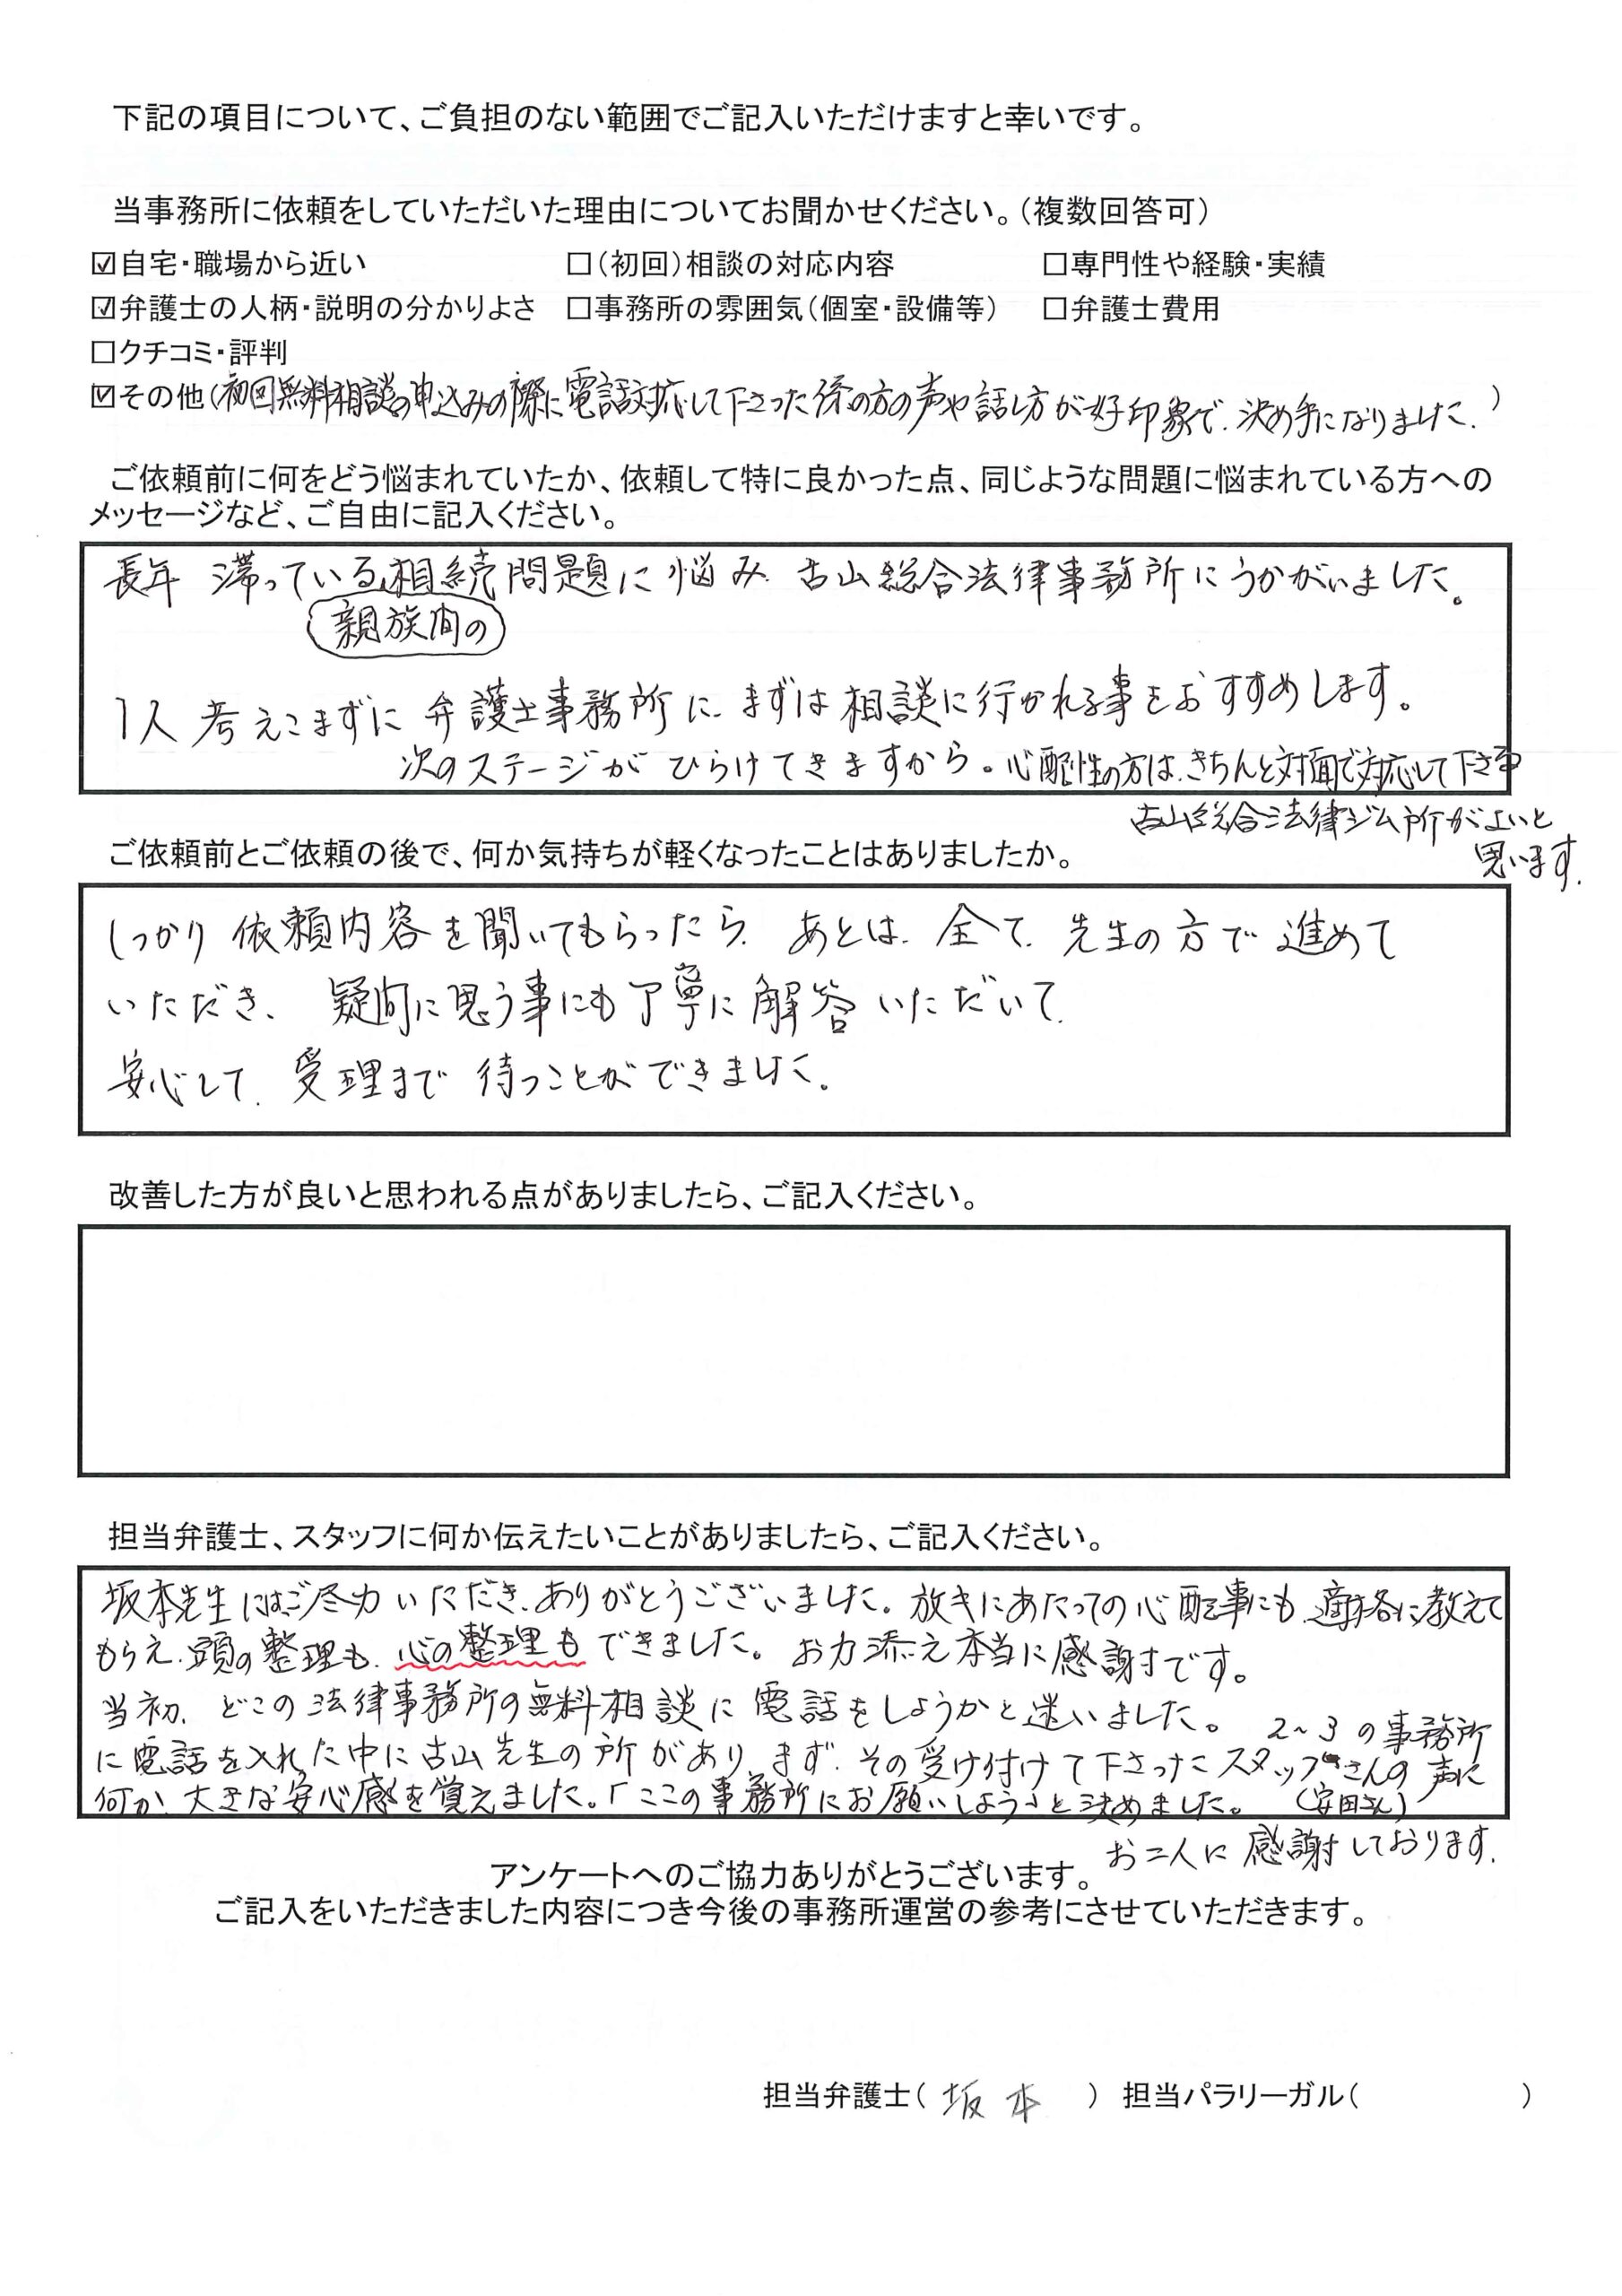 下記の項目について、ご負担のない範囲でご記入いただけますと幸いです。
当事務所に依頼をしていただいた理由についてお聞かせください。（複数回答可）
☑自宅・職場から近い　□（初回）相談の対応内容　□専門性や経験・実績
☑弁護士の人柄・説明の分かりよさ　□事務所の雰囲気（個室・設備等）　□弁護士費用
□クチコミ・評判
☑その他（初回無料相談の申込みの際に電話対応して下さった係の方の声や話し方が好印象で、決め手になりました。）
ご依頼前に何をどう悩まれていたか、依頼して特に良かった点、同じような問題に悩まれている方への
メッセージなど、ご自由に記入ください。
長年 滞っている相続問題に悩み、古山総合法律事務所にうかがいました。
親族間の
1人 考えこまずに 弁護士事務所に、まずは相談に行かれる事をおすすめします。
次のステージが ひらけてきますから。心配性の方は、きちんと対面で対応して下さる
古山総合法律ジム所がよいと
思います。
ご依頼前とご依頼の後で、何か気持ちが軽くなったことはありましたか。
しっかり 依頼内容を聞いてもらったら、あとは、全て、先生の方で進めて
いただき、疑問に思う事にも丁寧に解答いただいて、
安心して、受理まで 待つことができました。
改善した方が良いと思われる点がありましたら、ご記入ください。
担当弁護士、スタッフに何か伝えたいことがありましたら、ご記入ください。
坂本先生にはご尽力いただき、ありがとうございました。放キにあたっての心配事にも、適格に教えて
もらえ、頭の整理も、心の整理もできました。お力添え本当に感謝です。
当初、どこの法律事務所の無料相談に電話をしようかと迷いました。2～3の事務所
に電話を入れた中に古山先生の所があり、まず、その受け付けて下さったスタッフさんの声に
何か、大きな安心感を覚えました。「ここの事務所にお願いしよう」と決めました。（安田さん）
お二人に感謝しております。
アンケートへのご協力ありがとうございます。
ご記入をいただきました内容につき今後の事務所運営の参考にさせていただきます。
担当弁護士（ 坂本 ） 担当パラリーガル（　　　）